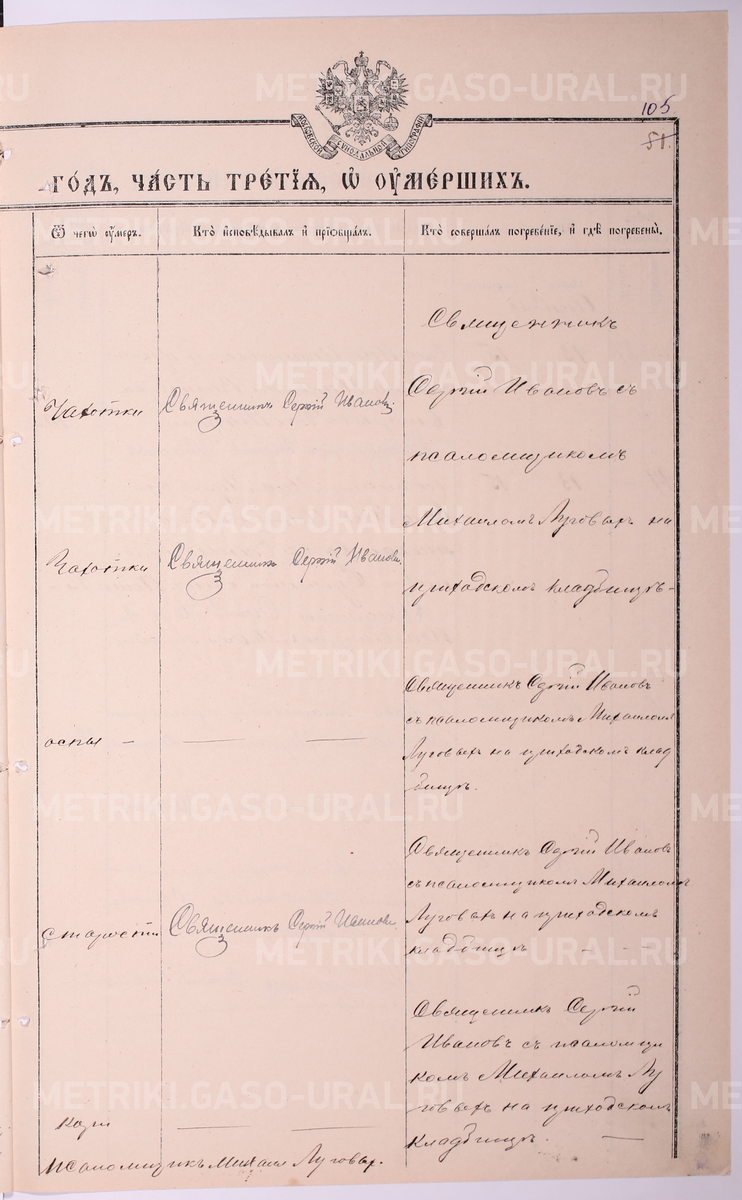 METRIKI.GASO-URAL.RU
105
51.
МОСКОВСКОЙ СИНОДАЛЬНОЙ ТИПОГРАФІИ
го́дъ, ча́сть тре́тїѧ, ѡ҆ ᲂу҆ме́ршихъ.
Ѿ чегѡ̀ ᲂу҆́мєръ.
Кто̀ и҆сповѣ́дывалъ и҆ прїѡбща́лъ.
Кто̀ соверша́лъ погребе́нїе, и҆ гдѣ̀ погребены̀.
Чахотки
Священникъ Сергій Ивановъ
Священникъ
Сергій Ивановъ съ
псаломщикомъ
Михаиломъ Луговыхъ на
приходскомъ кладбищѣ-
Чахотки
Священникъ Сергій Ивановъ
оспы —
Священникъ Сергій Ивановъ
съ псаломщикомъ Михаиломъ
Луговыхъ на приходскомъ клад
бищѣ.
Старости
Священникъ Сергій Ивановъ
Священникъ Сергій Ивановъ
съ псаломщикомъ Михаиломъ
Луговыхъ на приходскомъ
кладбищѣ — —
кори
Священникъ Сергій
Ивановъ съ псаломщи
комъ Михаиломъ Лу
говыхъ на приходскомъ
кладбищѣ. —
псаломщикъ Михаил Луговых.